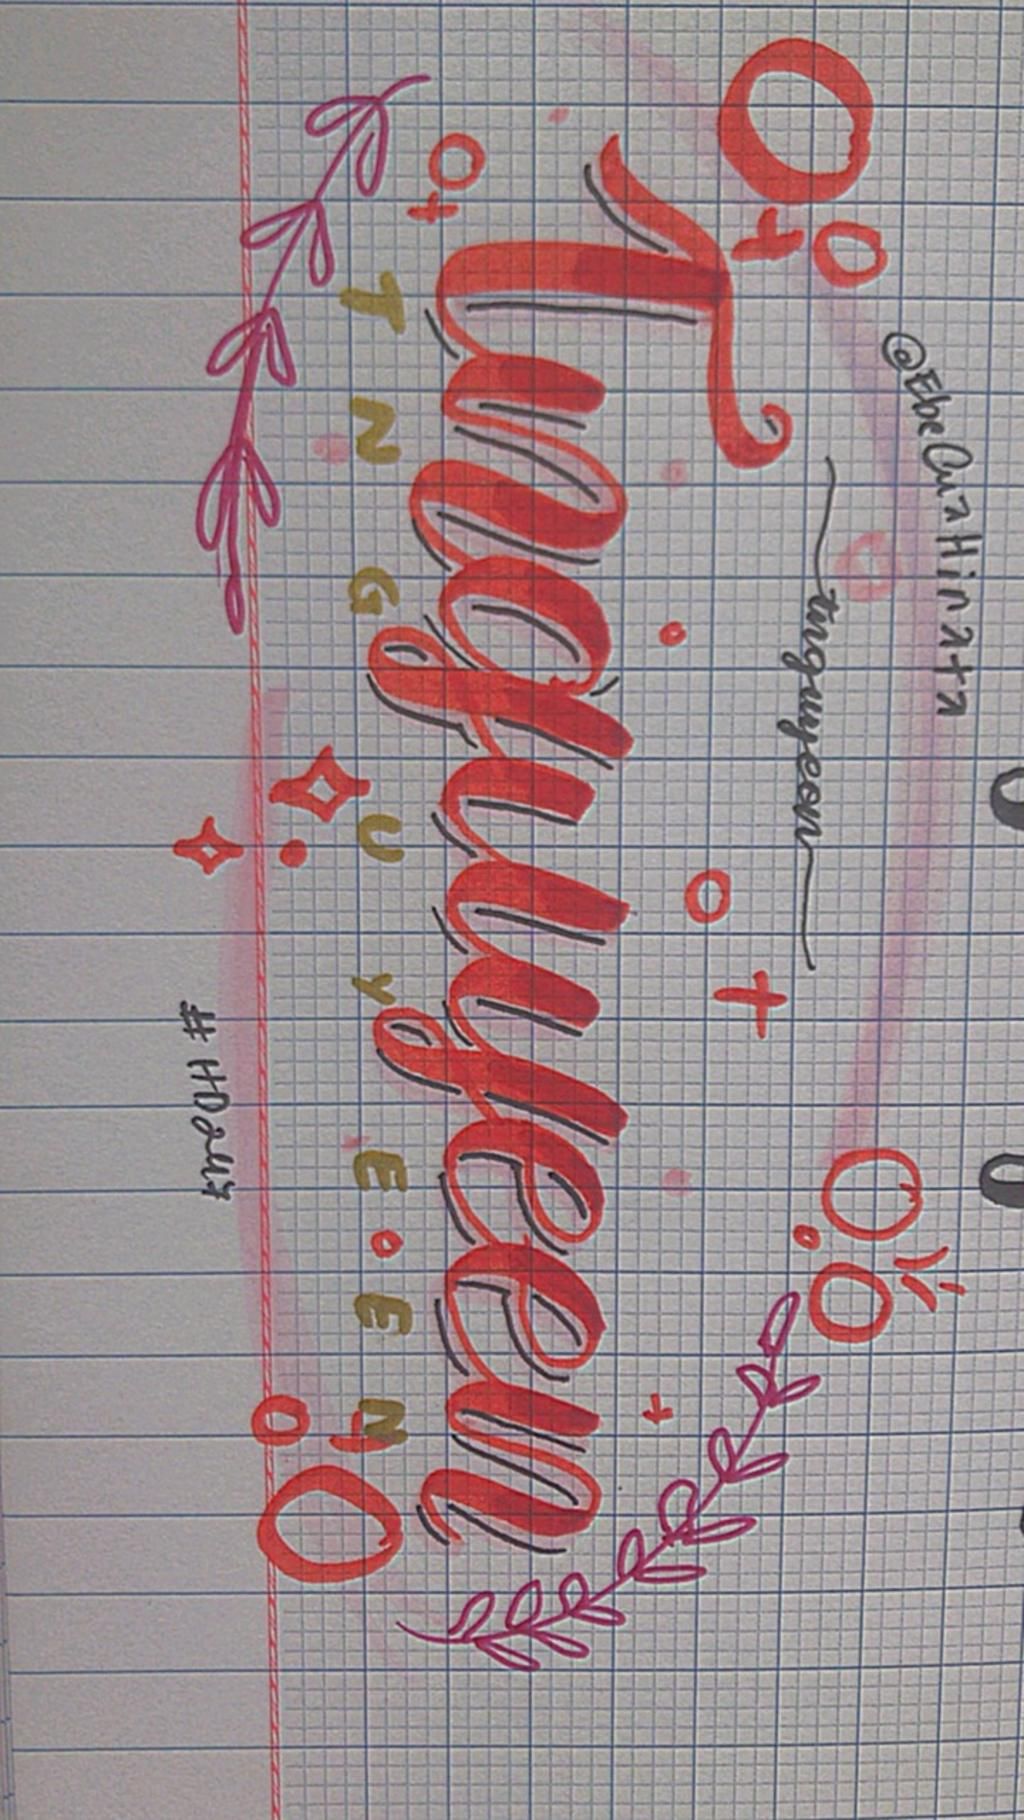 @EbeCuaHinata
tnguyeen
Tnguyeen
T N G U Y E E N